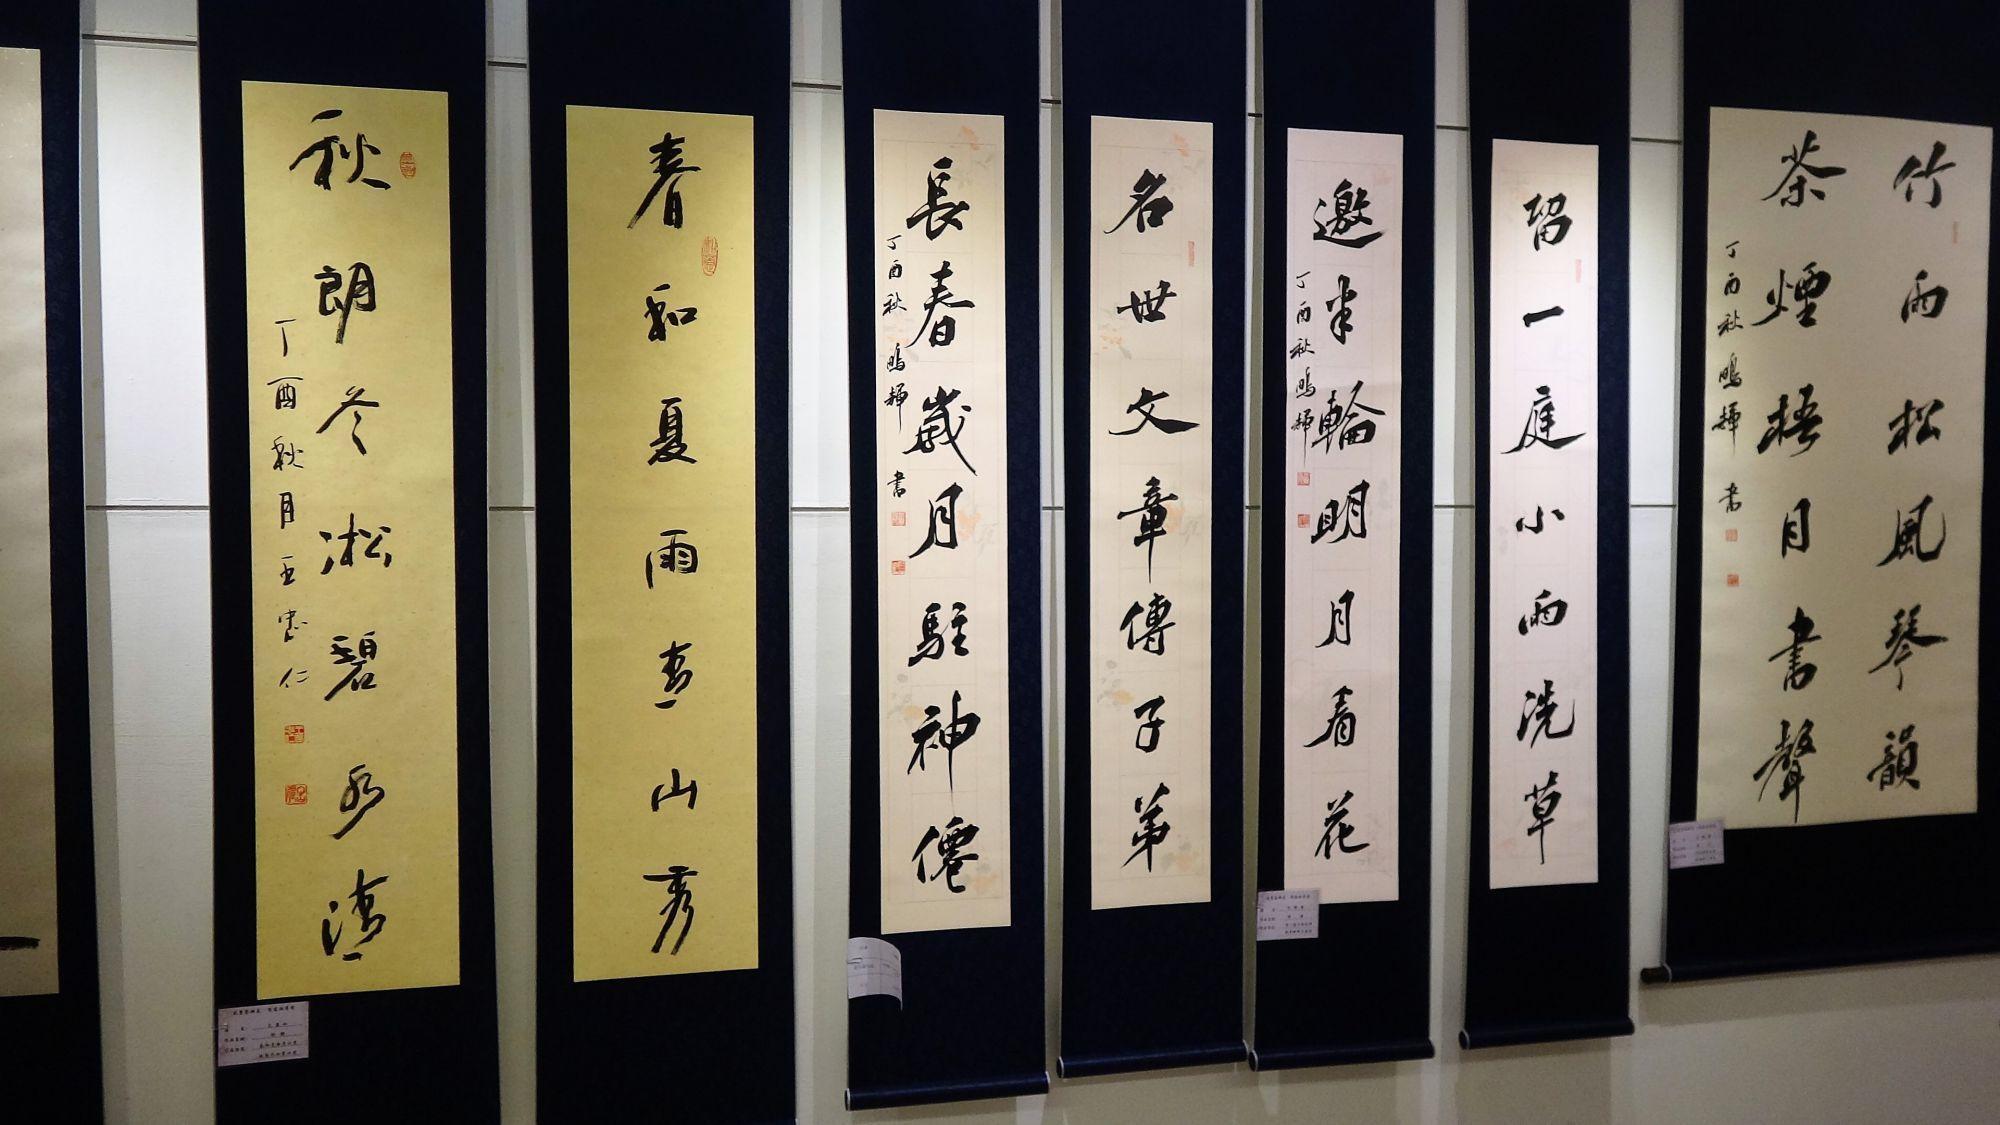 竹雨松風琴韻
茶煙梧月書聲
丁酉秋鳴輝書
留一庭小雨洗草
邀半輪明月看花
丁酉秋鳴輝
名世文章傳子弟
長春歲月駐神僊
丁酉秋鳴輝書
春和夏雨青山秀
秋朗冬凇碧水清
丁酉秋月王憲仁